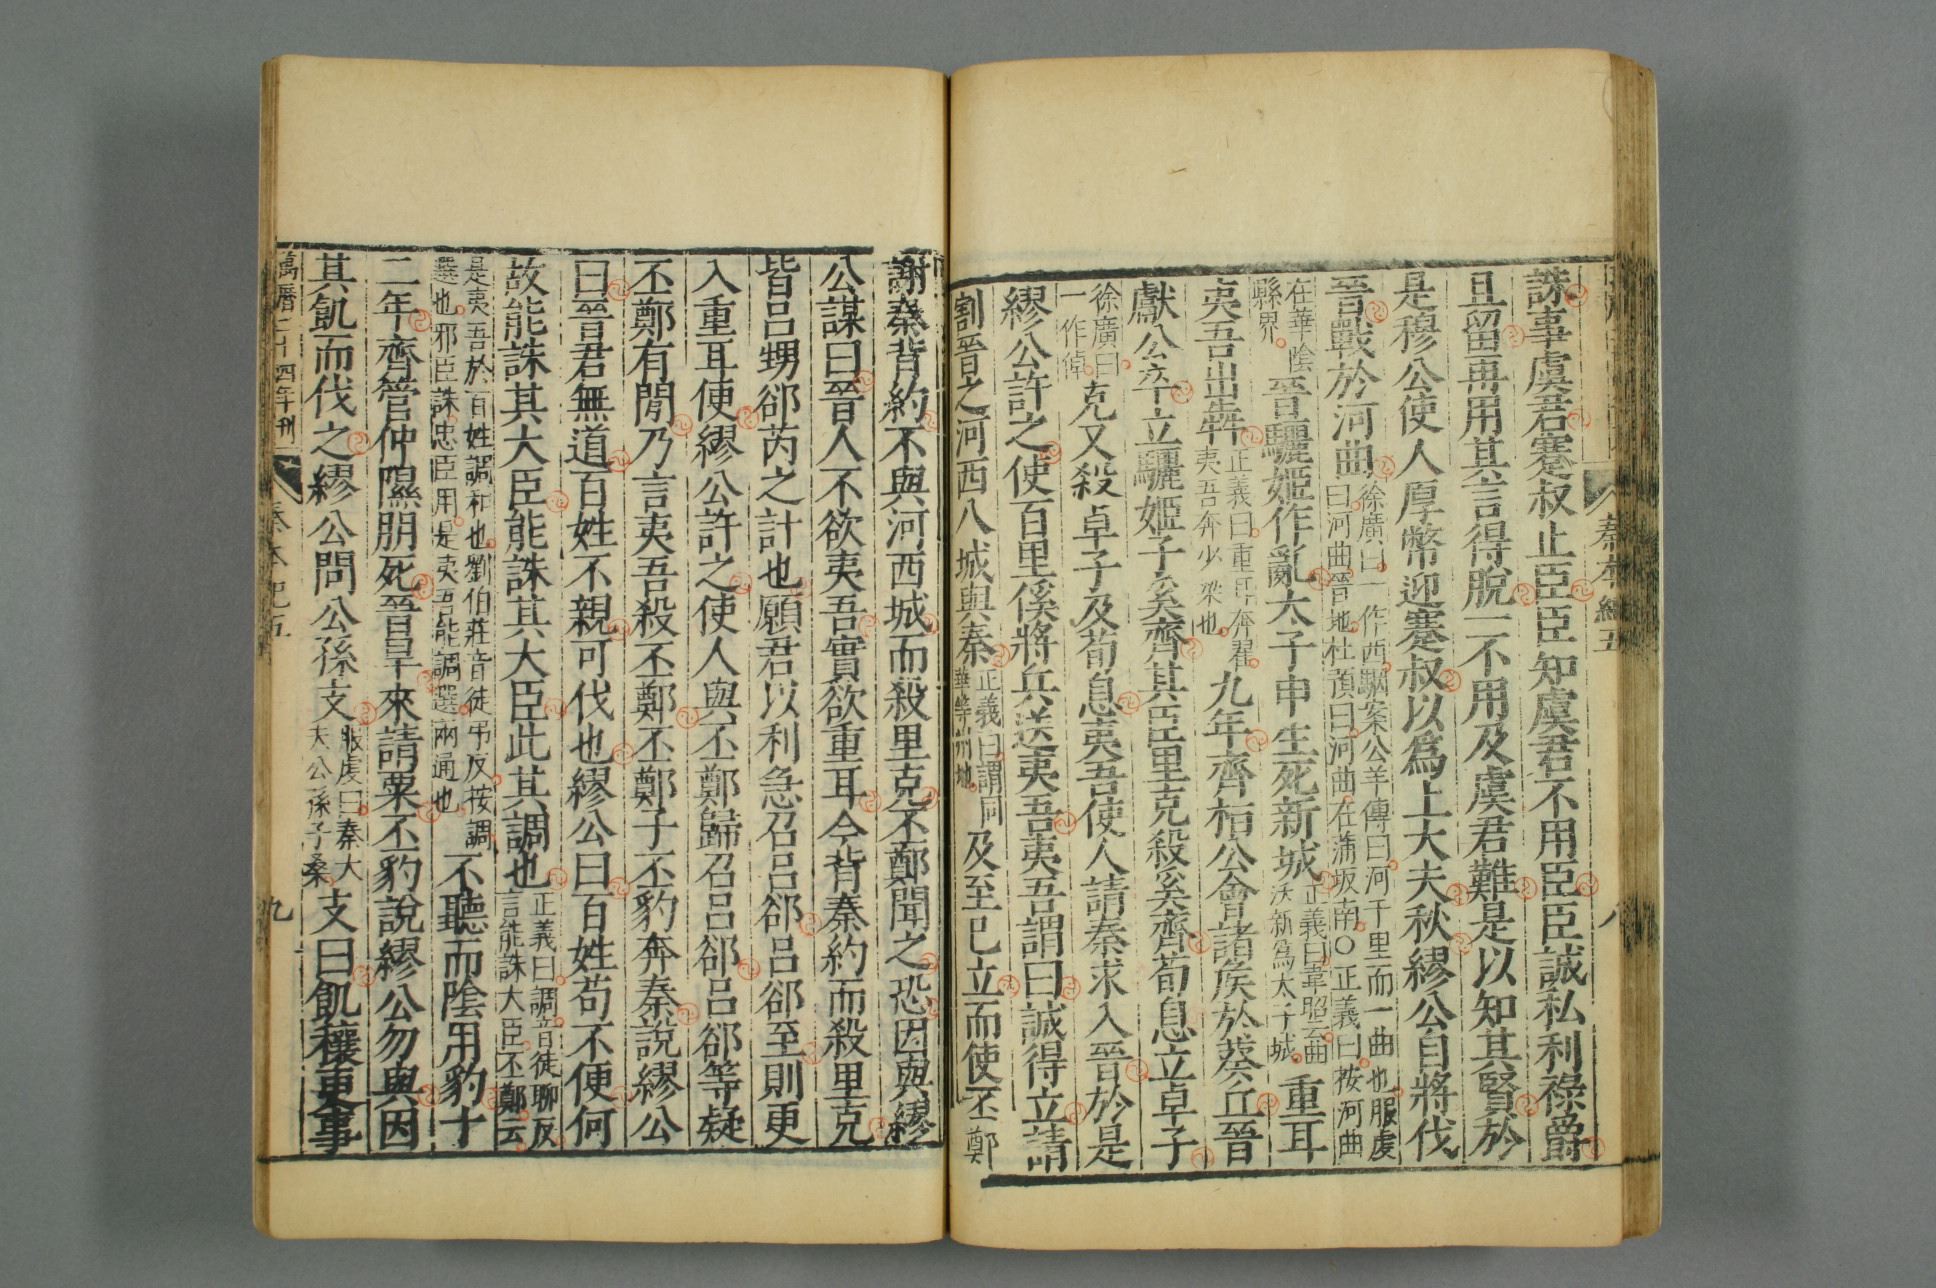 秦本紀五
八
誅事虞君蹇叔止臣臣知虞君不用臣臣誠私利祿爵
且留再用其言得脫一不用及虞君難是以知其賢於
是穆公使人厚幣迎蹇叔以爲上大夫秋繆公自將伐
晉戰於河曲徐廣曰一作西駰案公羊傳曰河千里而一曲也服虔
曰河曲晉地杜預曰河曲在蒲坂南○正義曰按河曲
在華陰
縣界晉驪姬作亂太子申生死新城正義曰韋昭云曲
沃新爲太子城重耳
夷吾出犇正義曰重耳奔翟
夷吾奔少梁也九年齊桓公會諸侯於葵丘晉
獻公卒立驪姬子奚齊其臣里克殺奚齊荀息立卓子
徐廣曰
一作倬克又殺卓子及荀息夷吾使人請秦求入晉於是
繆公許之使百里傒將兵送夷吾夷吾謂曰誠得立請
割晉之河西八城與秦正義曰謂同
華等州地及至已立而使丕鄭
謝秦背約不與河西城而殺里克丕鄭聞之恐因與繆
公謀曰晉人不欲夷吾實欲重耳今背秦約而殺里克
皆呂甥郤芮之計也願君以利急召呂郤呂郤至則更
入重耳便繆公許之使人與丕鄭歸召呂郤呂郤等疑
丕鄭有閒乃言夷吾殺丕鄭丕鄭子丕豹奔秦說繆公
曰晉君無道百姓不親可伐也繆公曰百姓苟不便何
故能誅其大臣能誅其大臣此其調也正義曰調音徒聊反
言能誅大臣丕鄭云
是夷吾於百姓調和也劉伯莊音徒弔反按調
選也邪臣誅忠臣用是夷吾能調選兩通也不聽而陰用豹十
二年齊管仲隰朋死晉旱來請粟丕豹說繆公勿與因
其飢而伐之繆公問公孫支服虔曰秦大
夫公孫子桑支曰飢穰更事
萬曆二十四年刊
秦本紀五
九